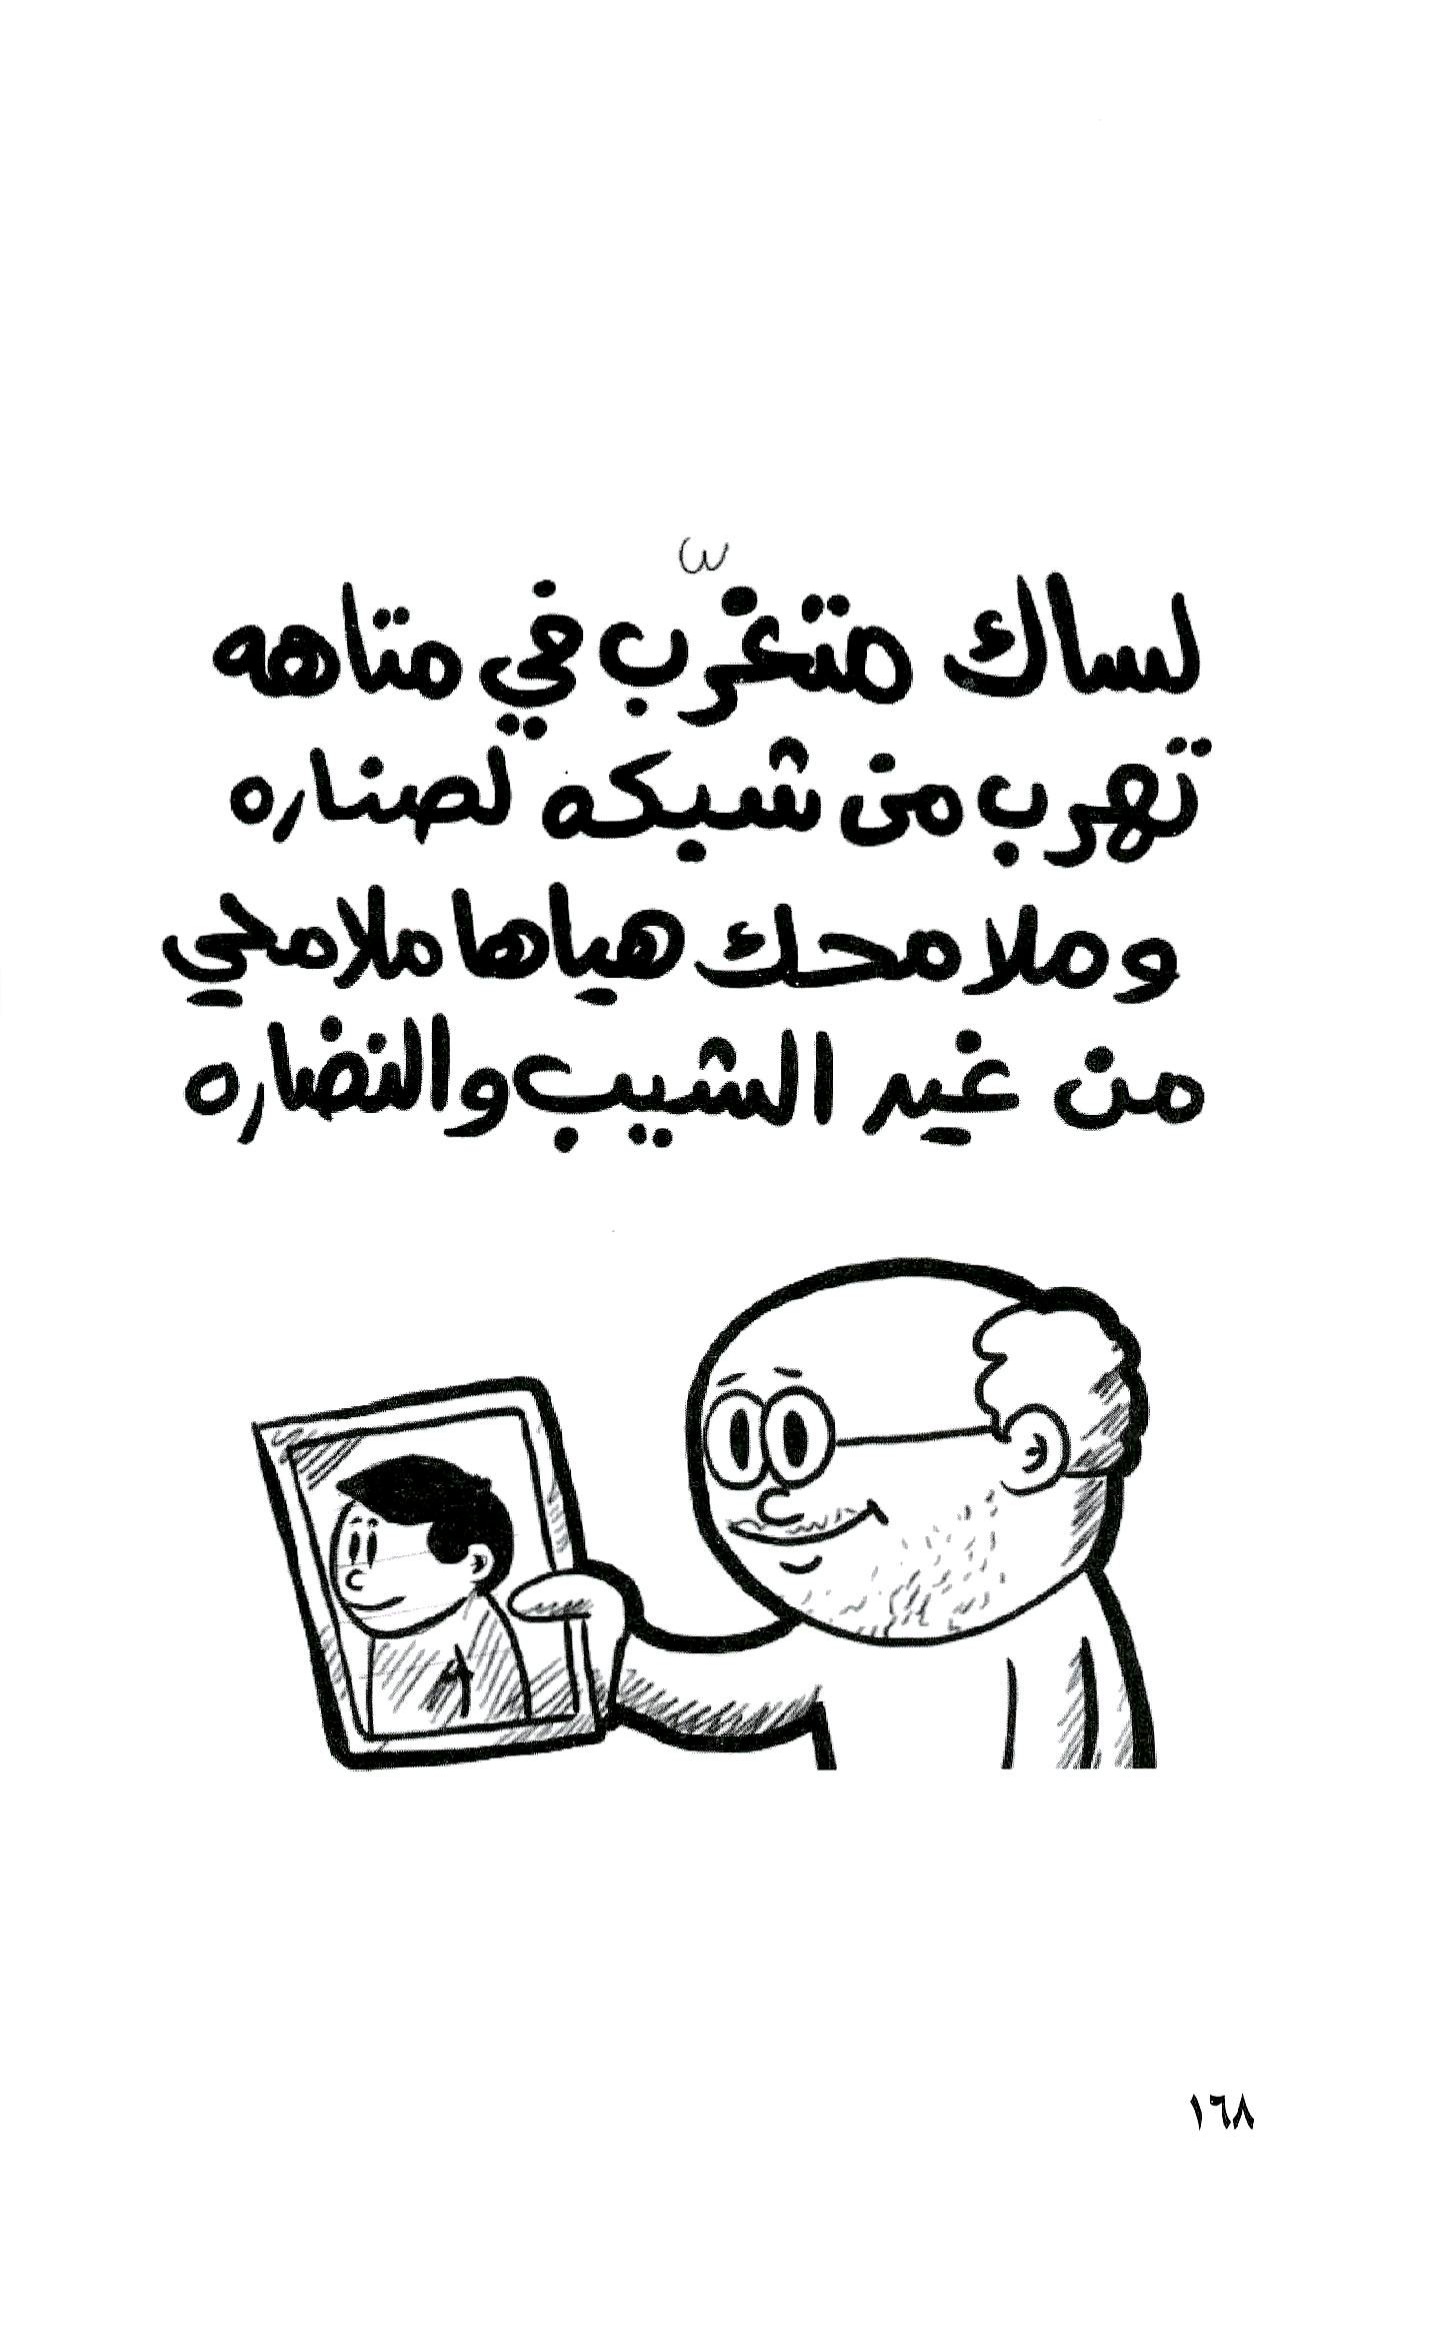 لساك متغرّب في متاهه
تهرب من شبكه لصناره
وملامحك هياها ملامحي
من غير الشيب والنضاره
١٦٨